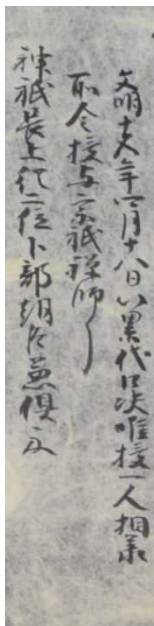 文明十六年六月十八日以累代口决唯授一人相承
所令授与宗祇禅師了
神祇長上従二位卜部朝臣兼倶